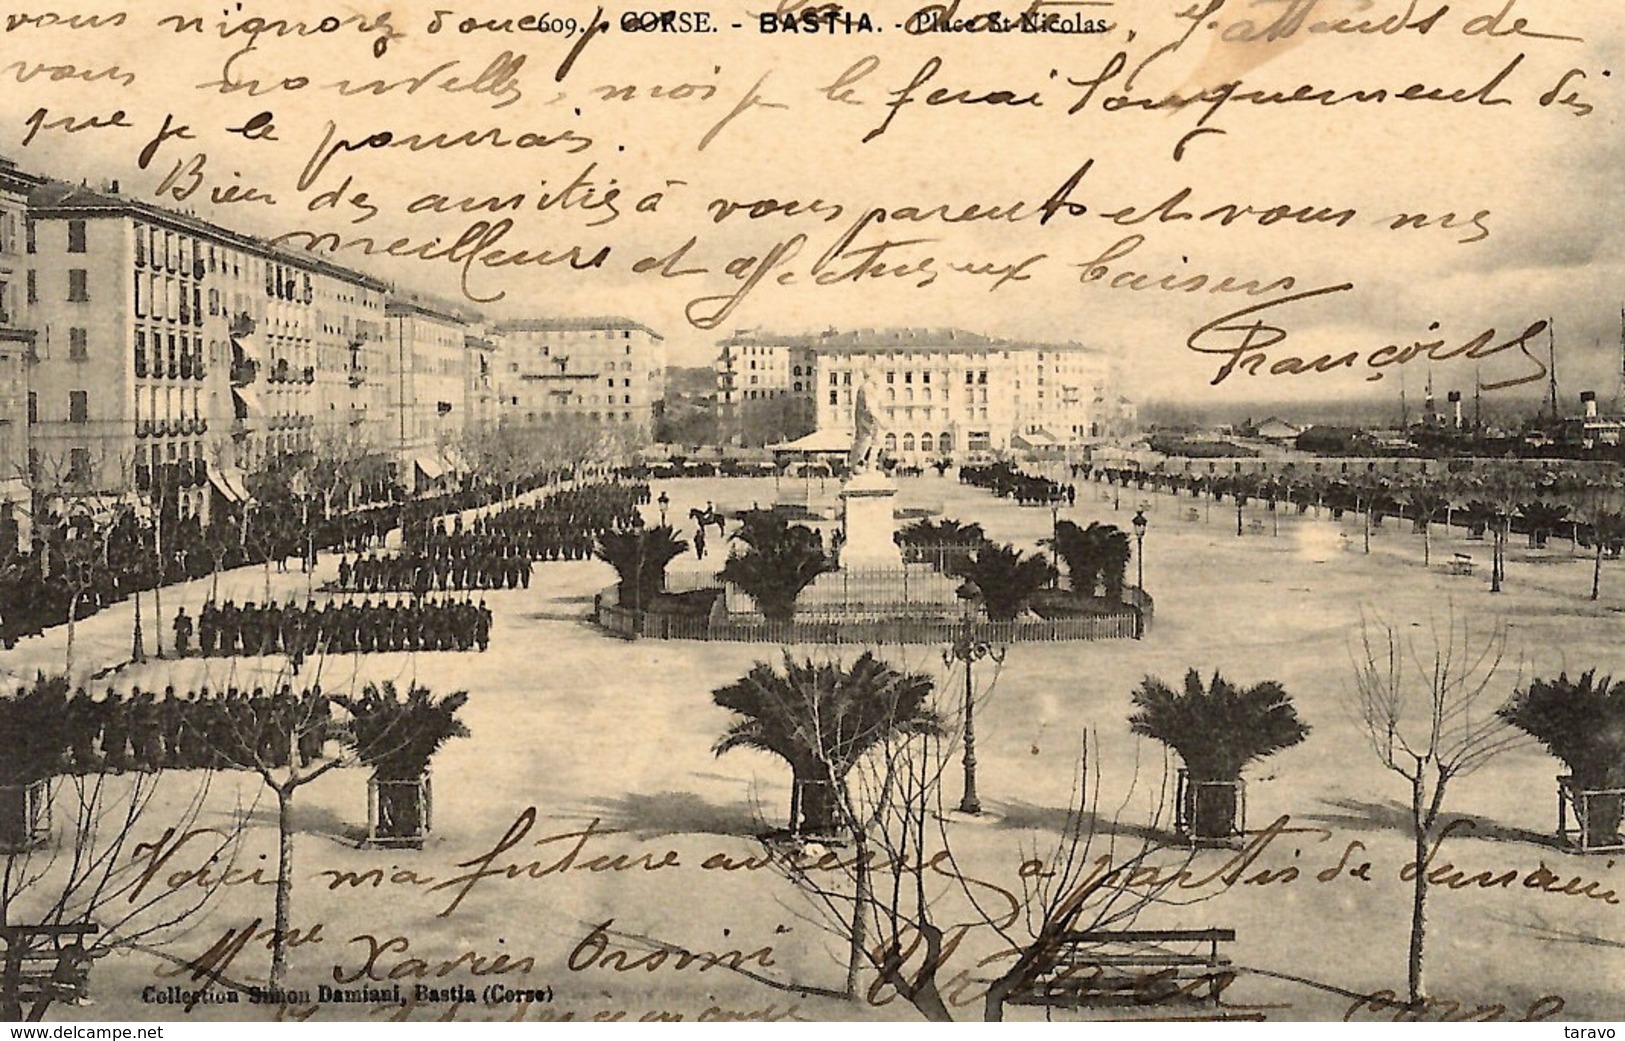 vous n'ignorez donc pas les . J'attends de
609. - CORSE. - BASTIA. - Place St-Nicolas
vous nouvelles, moi je le ferai longuement dès
que je le pourrais.
Bien des amitiés à vous parents et vous mes
meilleurs et affectueux baisers
Françoise
Voici ma future adresse a partir de demain
Mme Xavier Orsini
Collection Simon Damiani, Bastia (Corse)
Corse
www.delcampe.net
taravo